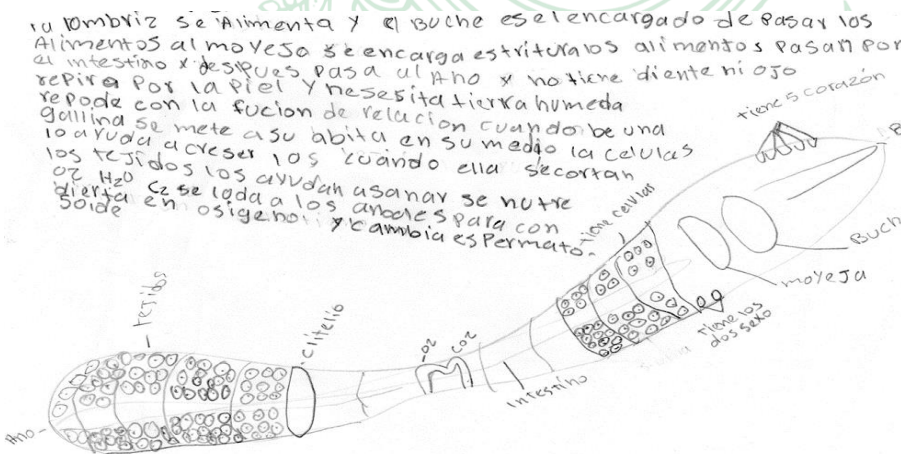 la lombriz se Alimenta y el Buche es el encargado de pasar los
Alimentos al moyeja se encarga estritura los alimentos pasan por
el intestino y despues pasa al Ano y no tiene diente ni ojo
repira Por la piel y nesesita tierra humeda
repode con la fucion de relacion cuando be una
gallina se mete a su abita en su medio la celulas
lo ayuda a creser los cuando ella se cortan
los tejidos los ayudan a sanar se nutre
O2 H2O
dierta C2 se loda a los arboles para con
en osigeno y cambia espermato.
tiene 5 corazón
Buch
moyeja
tiene los
dos sexo
tiene celulas
intestino
-O2
CO2
clitelio
tejidos
Ano